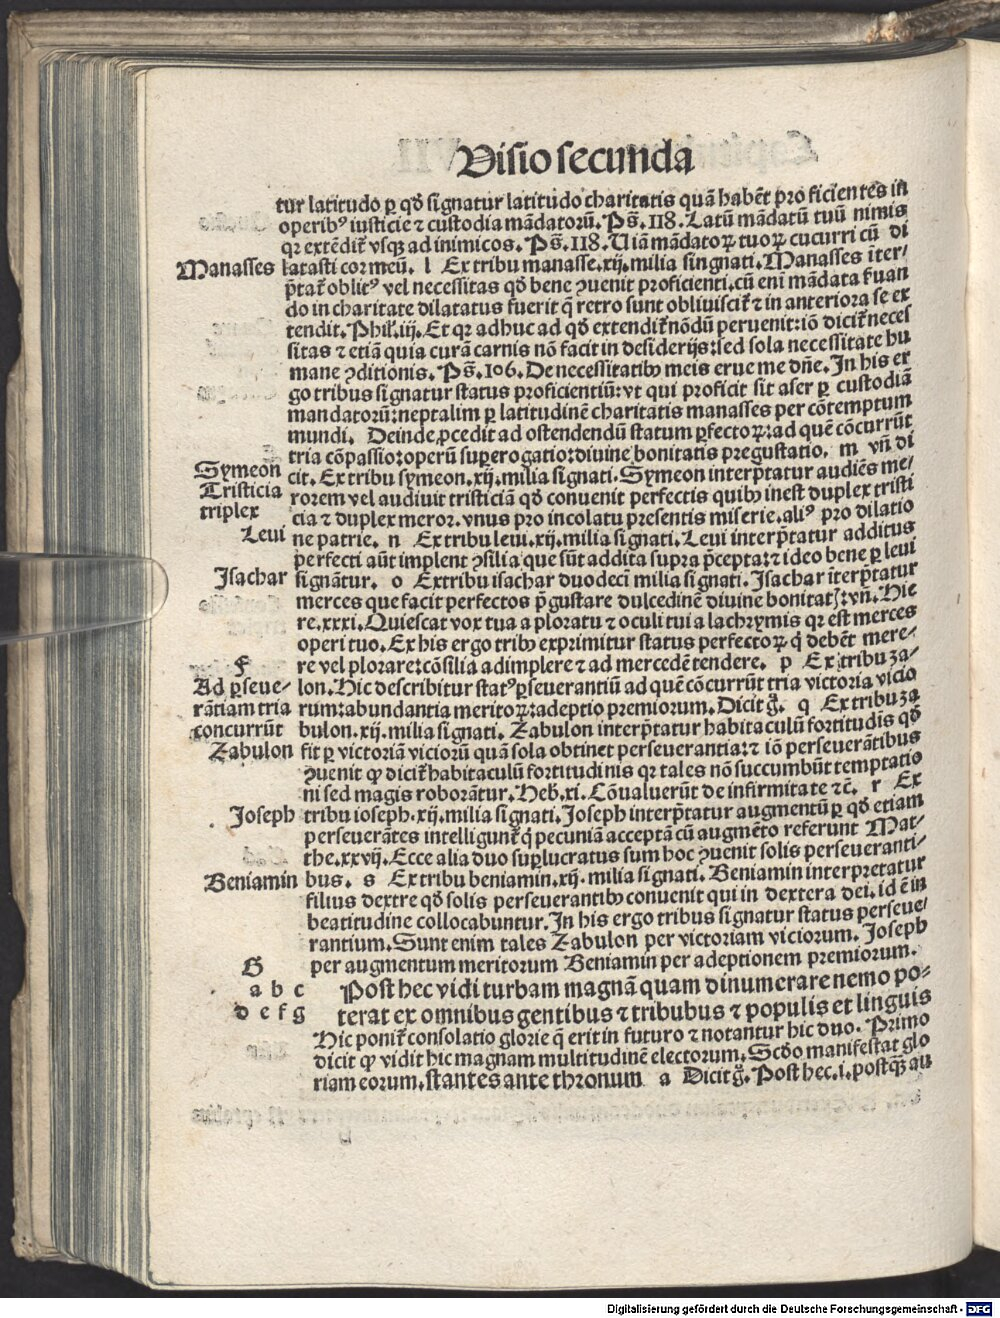 Visio secunda
tur latitudo ꝑ qď signatur latitudo charitatis quā habēt proficientes in
operibꝰ iusticie ⁊ custodia mādatorū. Ps̄. 118. Latū mādatū tuū nimis
qꝛ extēdit̄ vsqꝫ ad inimicos. Ps̄. 118. Uiā mādatoꝝ tuoꝝ cucurri cū di
Manasses latasti cor meū. l Ex tribu manasse. xij. milia singnati. Manasses iter-
p̄tat̄ oblitꝰ vel necessitas qď bene ꝯuenit proficienti. cū eni mādata seruan
do in charitate dilatatus fuerit q̄ retro sunt obliuiscit̄ ⁊ in anteriora se ex
tendit. Phil. iij. Et qꝛ adhuc ad qď extendit̄ nōdū peruenit: iō dicit̄ neces
sitas ⁊ etiā quia curā carnis nō facit in desiderijs: sed sola necessitate hu
mane ꝯditionis. Ps̄. 106. De necessitatibꝫ meis erue me dn̄e. In his er
go tribus signatur status proficientiū: vt qui proficit sit aser ꝑ custodiā
mandatorū: neptalim ꝑ latitudinē charitatis manasses per cōtemptum
mundi. Deinde ꝓcedit ad ostendendū statum ꝑfectoꝝ: ad quē cōcurrūt
E
tria cōpassio: operū suꝑerogatio: diuine bonitatis pregustatio. m vn̄ di
Symeon cit. Ex tribu symeon. xij. milia signati. Symeon interp̄tatur audiēs me-
Tristicia rorem vel audiuit tristiciā qď conuenit perfectis quibꝫ inest duplex tristi
triplex cia ⁊ duplex meror. vnus pro incolatu presentis miserie. aliꝰ pro dilatio
Leui ne patrie. n Ex tribu leui. xij. milia signati. Leui interp̄tatur additus
perfecti aūt implent ꝯsilia que sūt addita supra p̄cepta: ⁊ ideo bene ꝑ leui
Isachar signātur. o Ex tribu isachar duodeci milia signati. Isachar iterp̄tatur
merces que facit perfectos p̄gustare dulcedinē diuine bonitatꝭ: vn̄. Hie
re. xxxi. Quiescat vox tua a ploratu ⁊ oculi tui a lachrymis qꝛ est merces
operi tuo. Ex his ergo tribꝫ exprimitur status perfectoꝝ q̄ debēt mere-
F re vel plorare: cōsilia adimplere ⁊ ad mercedē tendere. p Ex tribu za-
Ad ꝑseue- lon. Hic describitur statꝰ ꝑseuerantiū ad quē cōcurrūt tria victoria vicio
rātiam tria rum: abundantia meritoꝝ: adeptio premiorum. Dicit g̊. q Ex tribu za
concurrūt bulon. xij. milia signati. Zabulon interp̄tatur habitaculū fortitudis qď
Zabulon fit ꝑ victoriā viciorū quā sola obtinet perseuerantia: ⁊ iō perseuerātibus
ꝯuenit ꝙ dicit̄ habitaculū fortitudinis qꝛ tales nō succumbūt temptatio
ni sed magis roborātur. Heb. xi. Cōualuerūt de infirmitate ⁊c̄. r Ex
Joseph tribu ioseph. xij. milia signati. Joseph interp̄tatur augmentū ꝑ qď etiam
perseuerātes intelligunt̄ q̄ pecuniā acceptā cū augmēto referunt Mat-
the. xxvij. Ecce alia duo suꝑlucratus sum hoc ꝯuenit solis perseueranti-
Beniamin bus. s Ex tribu beniamin. xij. milia signati. Beniamin interpretatur
filius dextre qď solis perseuerantibꝫ conuenit qui in dextera dei. id ē in
beatitudine collocabuntur. In his ergo tribus signatur status perseue-
rantium. Sunt enim tales Zabulon per victoriam viciorum. Joseph
G per augmentum meritorum Beniamin per adeptionem premiorum.
a b c Post hec vidi turbam magnā quam dinumerare nemo po-
d e f g terat ex omnibus gentibus ⁊ tribubus ⁊ populis et linguis
Hic ponit̄ consolatio glorie q̄ erit in futuro ⁊ notantur hic duo. Primo
dicit ꝙ vidit hic magnam multitudinē electorum. Scďo manifestat glo
riam eorum. stantes ante thronum a Dicit g̊. Post hec. i. postqꝫ̄ au
Digitalisierung gefördert durch die Deutsche Forschungsgemeinschaft - DFG